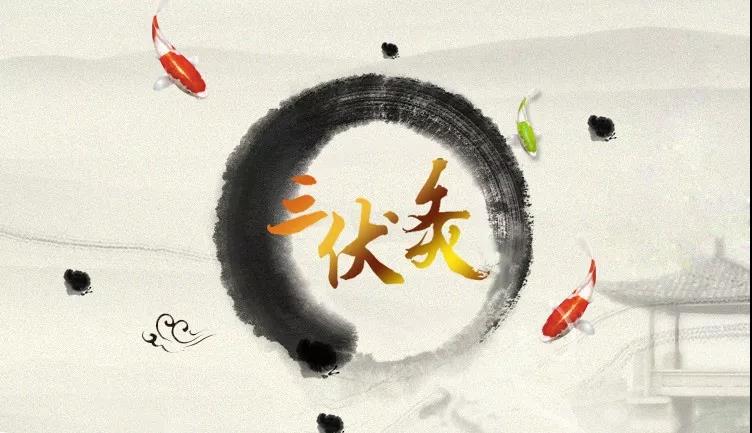 三伏灸